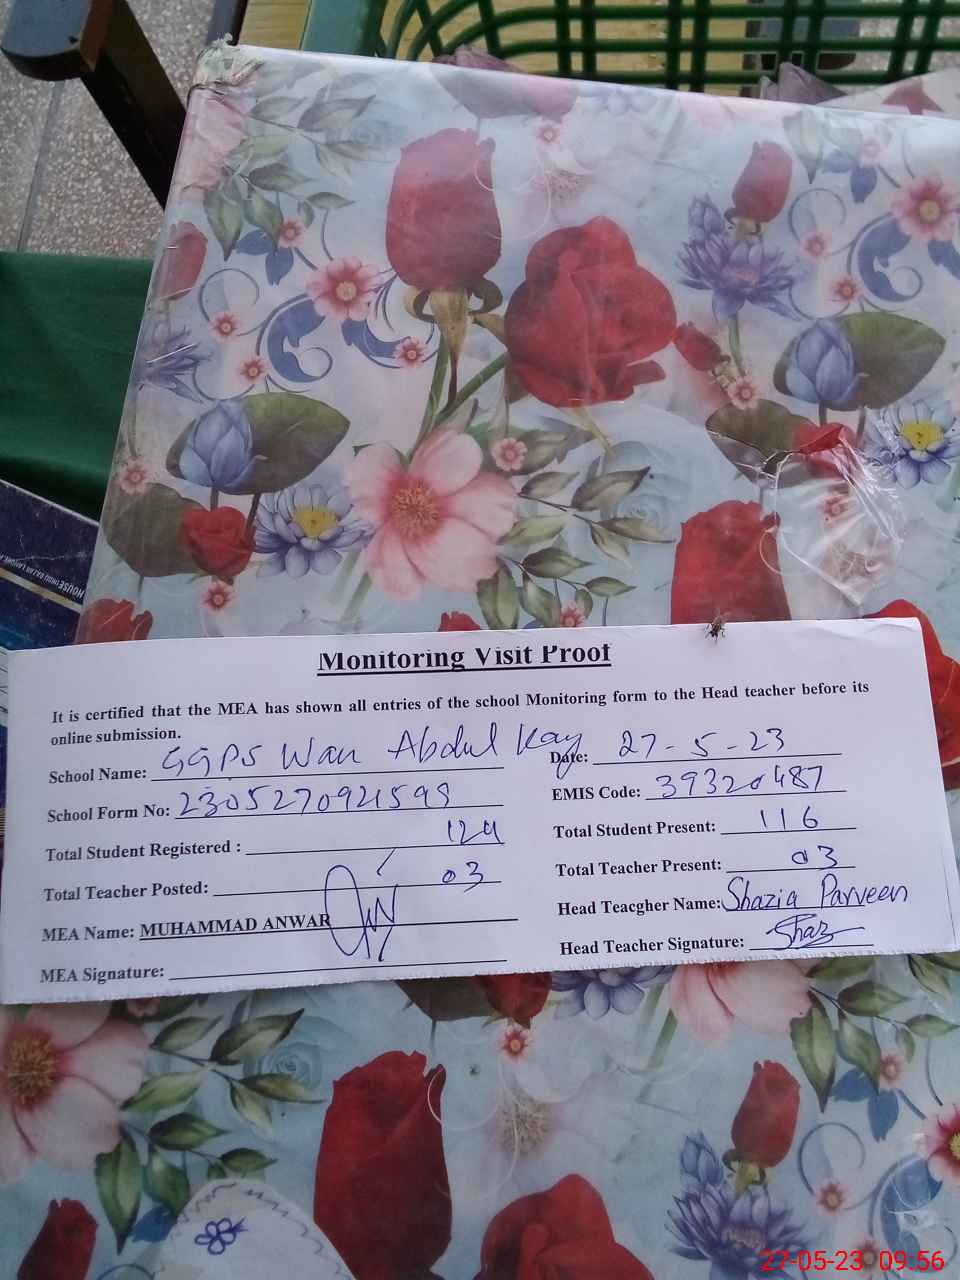 HOUSE
Monitoring Visit Proof
It is certified that the MEA has shown all entries of the school Monitoring form to the Head teacher before its
online submission.
School Name: GGPS Wan Abdul Kay Date: 27-5-23
School Form No: 2305270921599 EMIS Code: 39320487
Total Student Registered : 124 Total Student Present: 116
Total Teacher Posted: 03 Total Teacher Present: 03
MEA Name: MUHAMMAD ANWAR Head Teacgher Name: Shazia Parveen
MEA Signature: Head Teacher Signature: Shaz
27-05-23 09:56